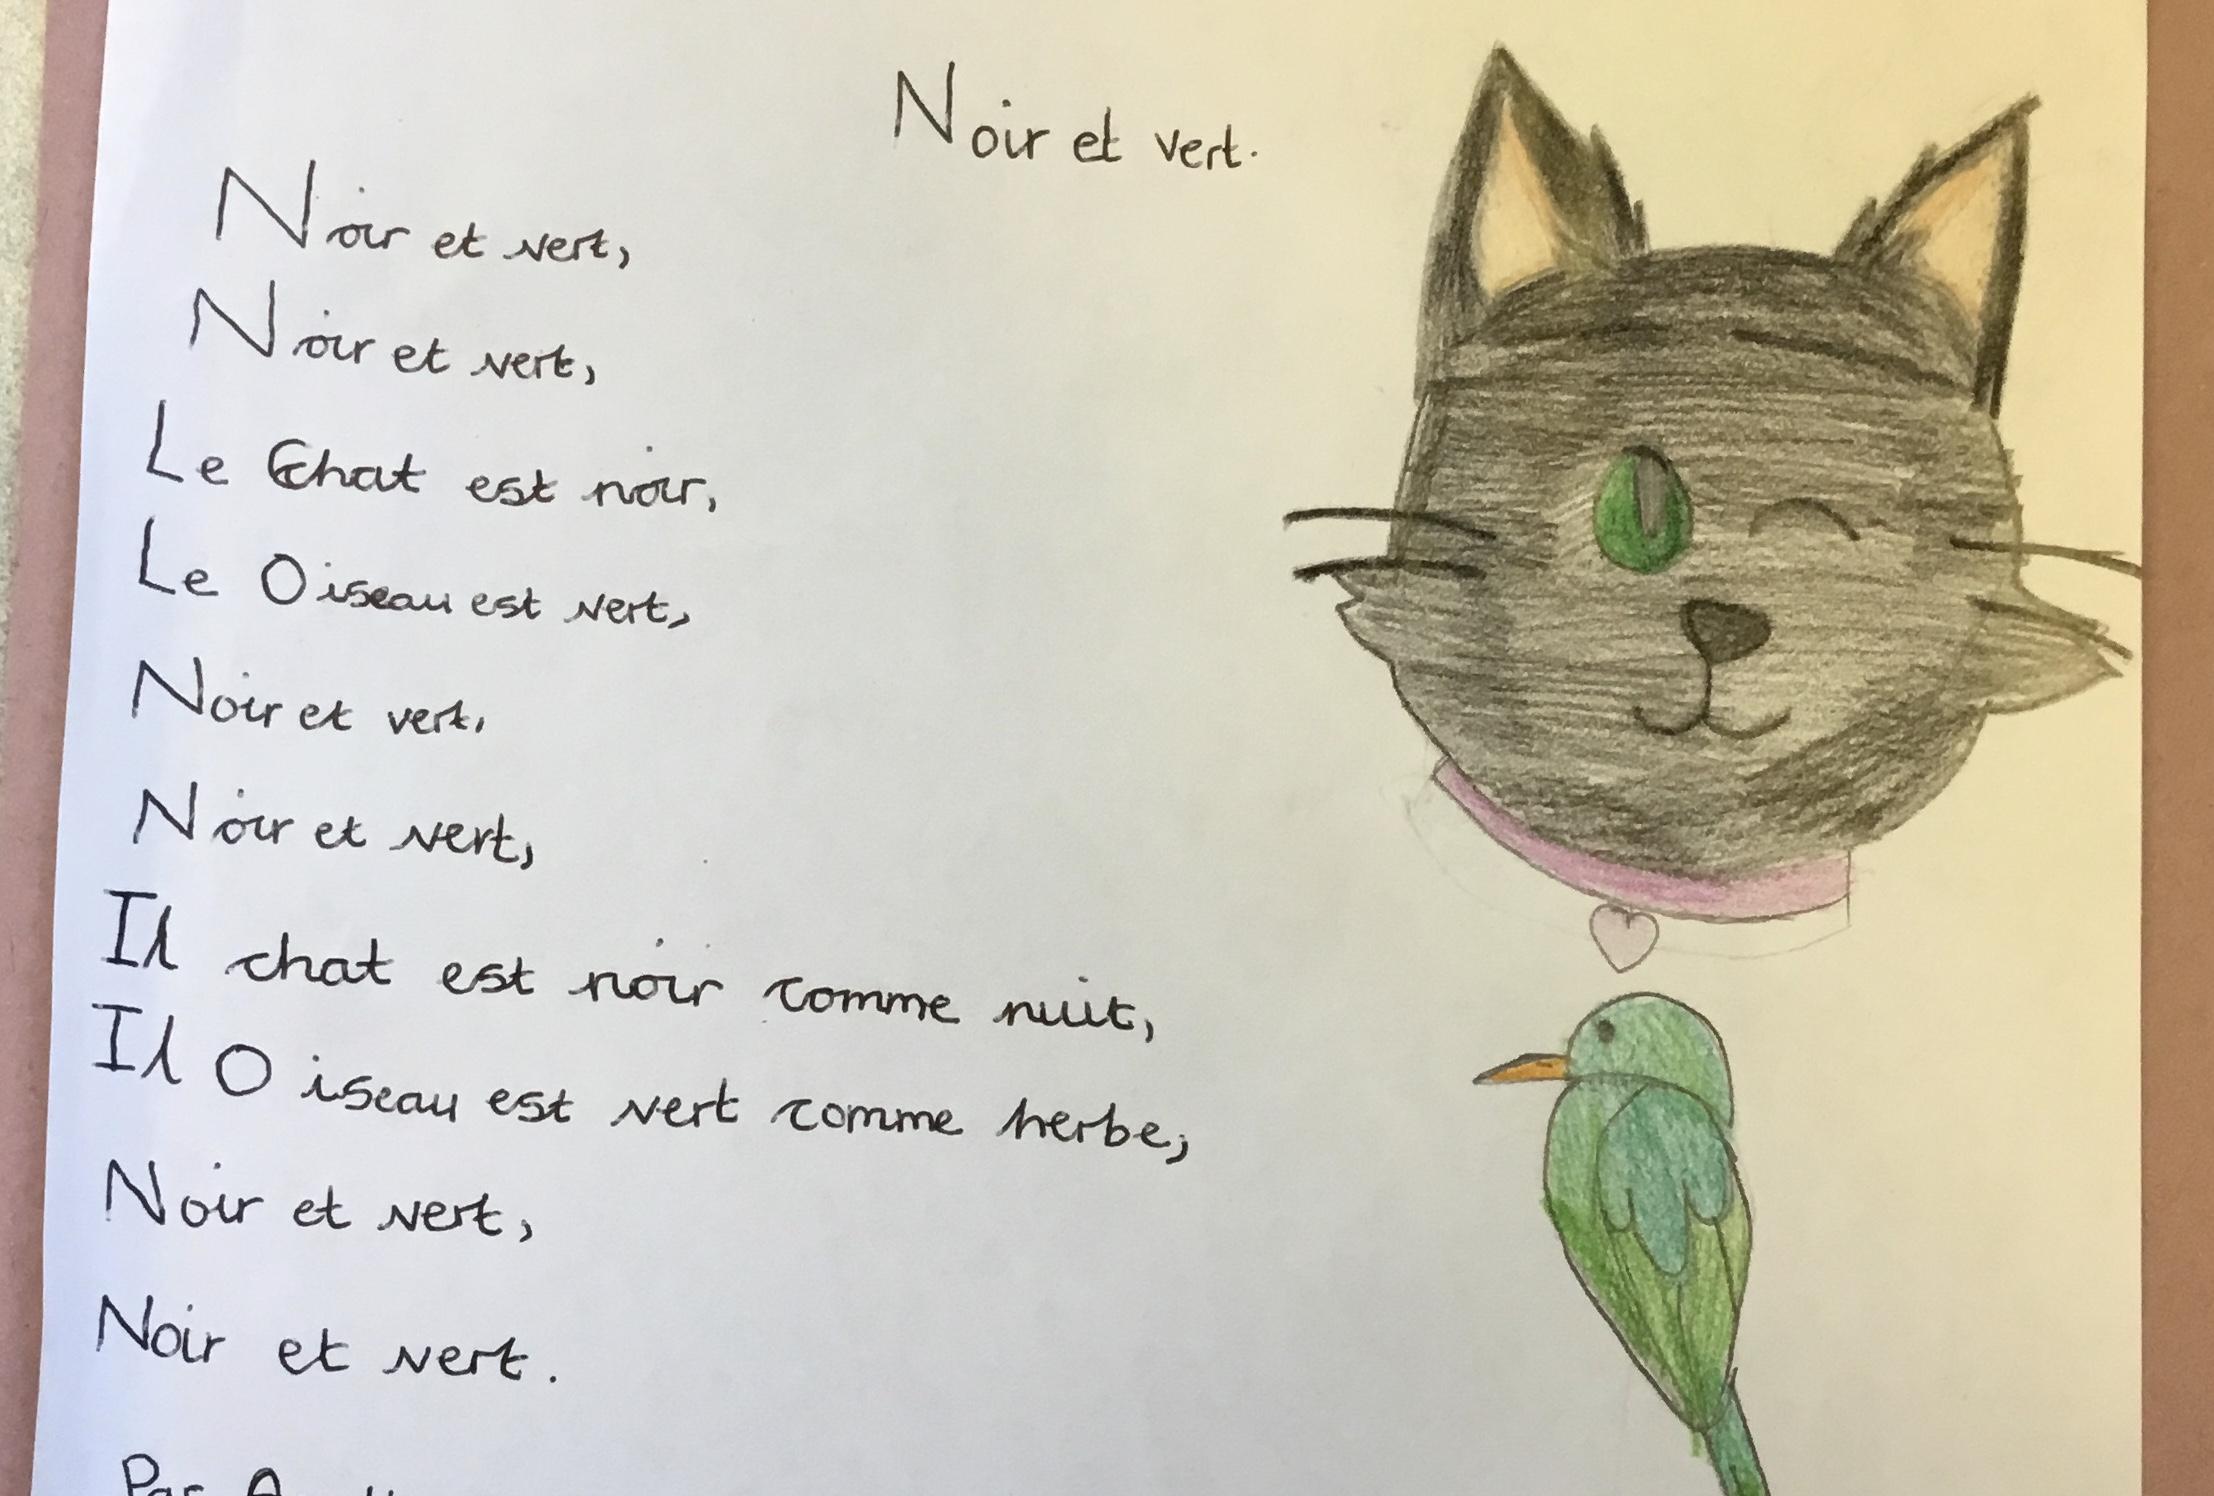 Noir et vert.
Noir et vert,
Noir et vert,
Le Chat est noir,
Le Oiseau est vert,
Noir et vert.
Noir et vert,
Il chat est noir comme nuit,
Il Oiseau est vert comme herbe,
Noir et vert,
Noir et vert.
Par